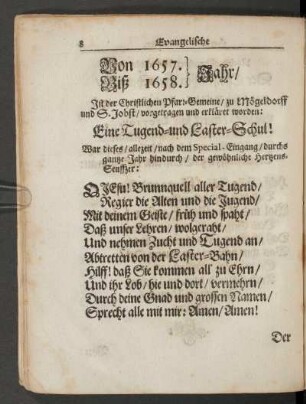 8 Evangelische
Von 1657. } Jahr/
Biß 1658.
Ist der Christlichen Pfarr-Gemeine/ zu Mögeldorff
und S. Jobst/ vorgetragen und erkläret worden:
Eine Tugend-und Laster-Schul!
War dieses/ allezeit/ nach dem Special-Eingang/ durchs
gantze Jahr hindurch/ der gewöhnliche Hertzens-
Seuffzer:
O JEsu! Brunnquell aller Tugend/
Regier die Alten und die Jugend/
Mit deinem Geiste/ früh und spaht/
Daß unser Lehren/ wolgeraht/
Und nehmen Zucht und Tugend an/
Abtretten von der Laster-Bahn/
Hilff! daß Sie kommen all' zu Ehrn/
Und ihr Lob/ hie und dort/ vermehrn/
Durch deine Gnad und grossen Namen/
Sprecht alle mit mir: Amen/ Amen!
Der